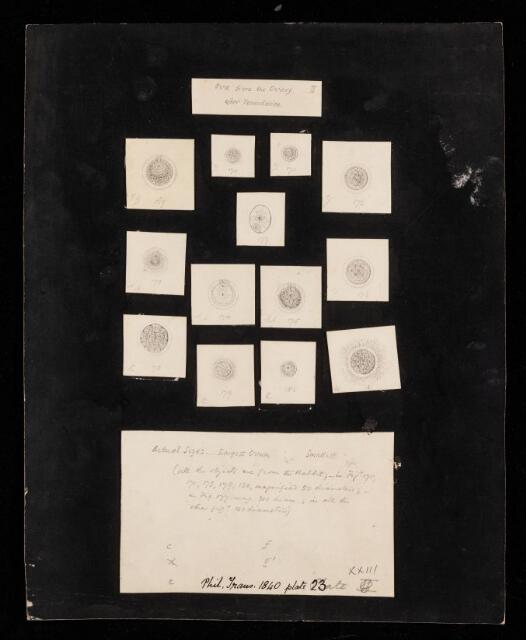 Ova from the Ovary, II
after Fecundation.
169
170
171
172
177
173
174
175
176
178
179
180
Actual Sizes. Largest Ovum Smallest
(all the objects are from the Rabbit; in Fig. 170,
71, 73, 179, 180, magnified 50 diameters;
in Fig. 177 mag. 300 diam.; in all the
other figs. 100 diameters)
c
x
c
XXIII
Phil. Trans. 1840 plate 23